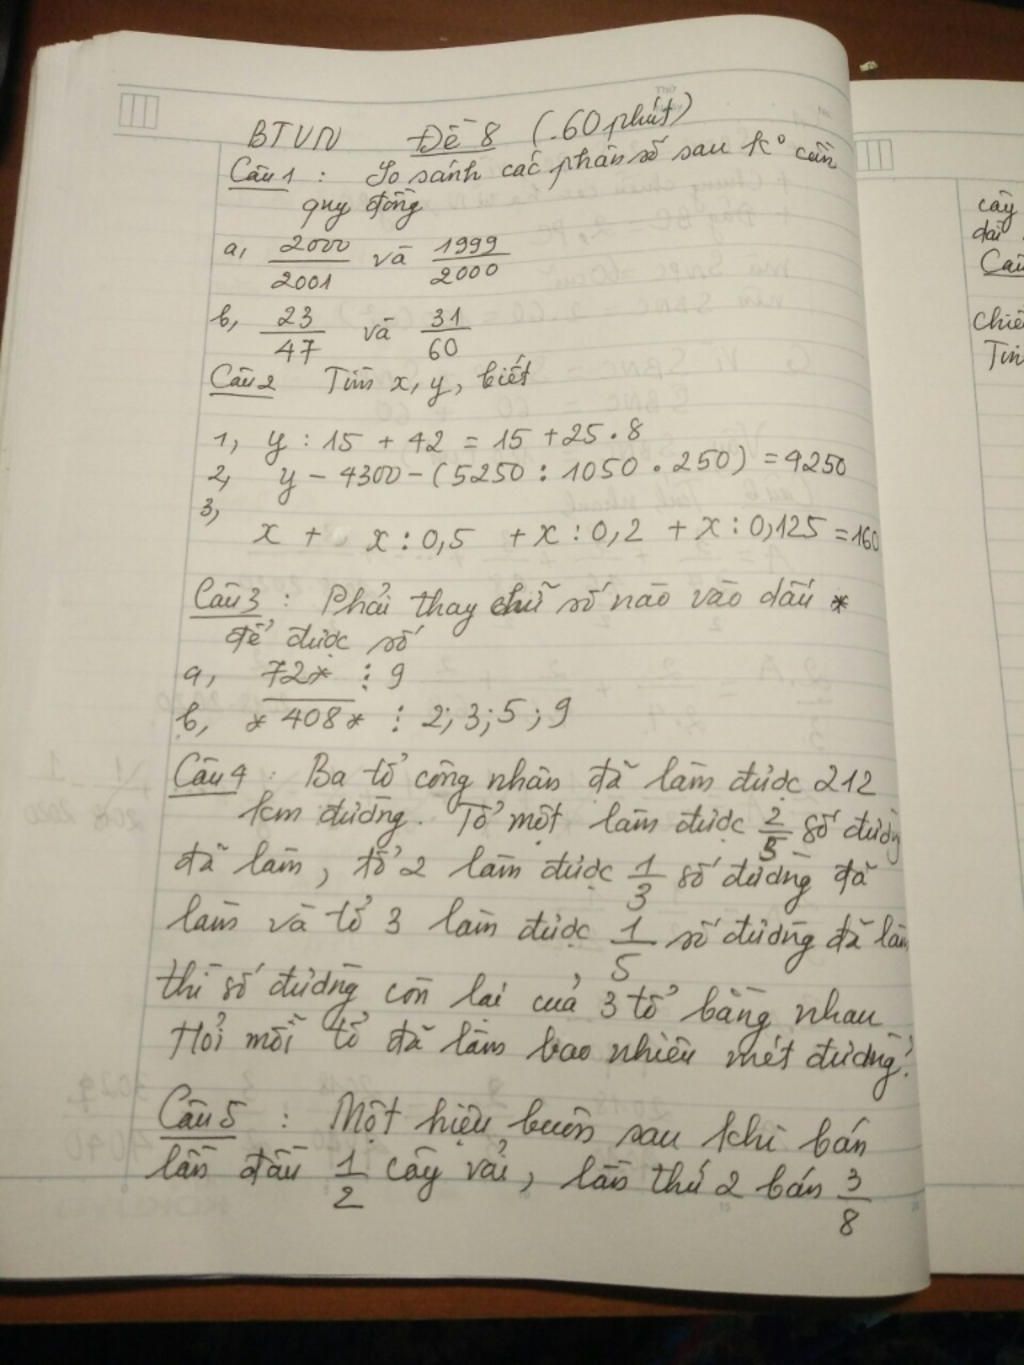 BTVN Đề 8 (.60 phút)
Câu 1 : So sánh các phân số sau k° cần
quy đồng
a, 2000/2001 và 1999/2000
b, 23/47 và 31/60
Câu 2 Tìm x, y, biết
1, y : 15 + 42 = 15 + 25 . 8
2, y - 4300 - (5250 : 1050 . 250) = 4250
3,
x + x : 0,5 + x : 0,2 + x : 0,125 = 160
Câu 3 : Phải thay chữ số nào vào dấu *
để được số
a, 72* ⋮ 9
b, *408* ⋮ 2; 3; 5; 9
Câu 4 : Ba tổ công nhân đã làm được 212
km đường. Tổ một làm được 2/5 số đường
đã làm, tổ 2 làm được 1/3 số đường đã
làm và tổ 3 làm được 1/5 số đường đã làm
thì số đường còn lại của 3 tổ bằng nhau
Hỏi mỗi tổ đã làm bao nhiêu mét đường?
Câu 5 : Một hiệu buôn sau khi bán
lần đầu 1/2 cây vải, lần thứ 2 bán 3/8
cây
dài
Câu
chiề
Tìm